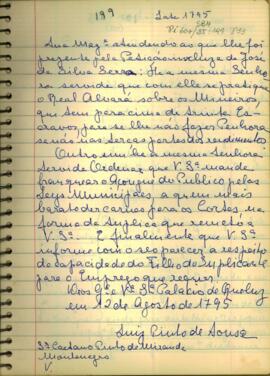 199 Lata 1795
Sua Magde atendendo ao que lhe foi
prezente pela Petição incluza de José
da Silva Serra: He a mesma Senho
ra servida que com elle se pratique
o Real Alvará, sobre os Mineiros,
que tem para cima de trinta Es
cravos, para se lhe não fazer Penhora
senão nas terças partes dos rendimentos
Outro sim he a mesma Senhora
Servida Ordenar que V. Sª mande
franquear o Açougue do Publico pelas
Leys Municipaes, a quem mais
barato der carne para os Cortes, na
forma da Suplica que remeto a
V. Sª. E finalmente que V. Sª
informe com o seo parecer a respeito
da capacidade do Filho do Suplicante
para o Emprego que requer.
Deos Gde V. Sª Palacio de Queluz
em 12 de Agosto de 1795
Luiz Pinto de Souza
Sr Caetano Pinto de Miranda
Montenegro